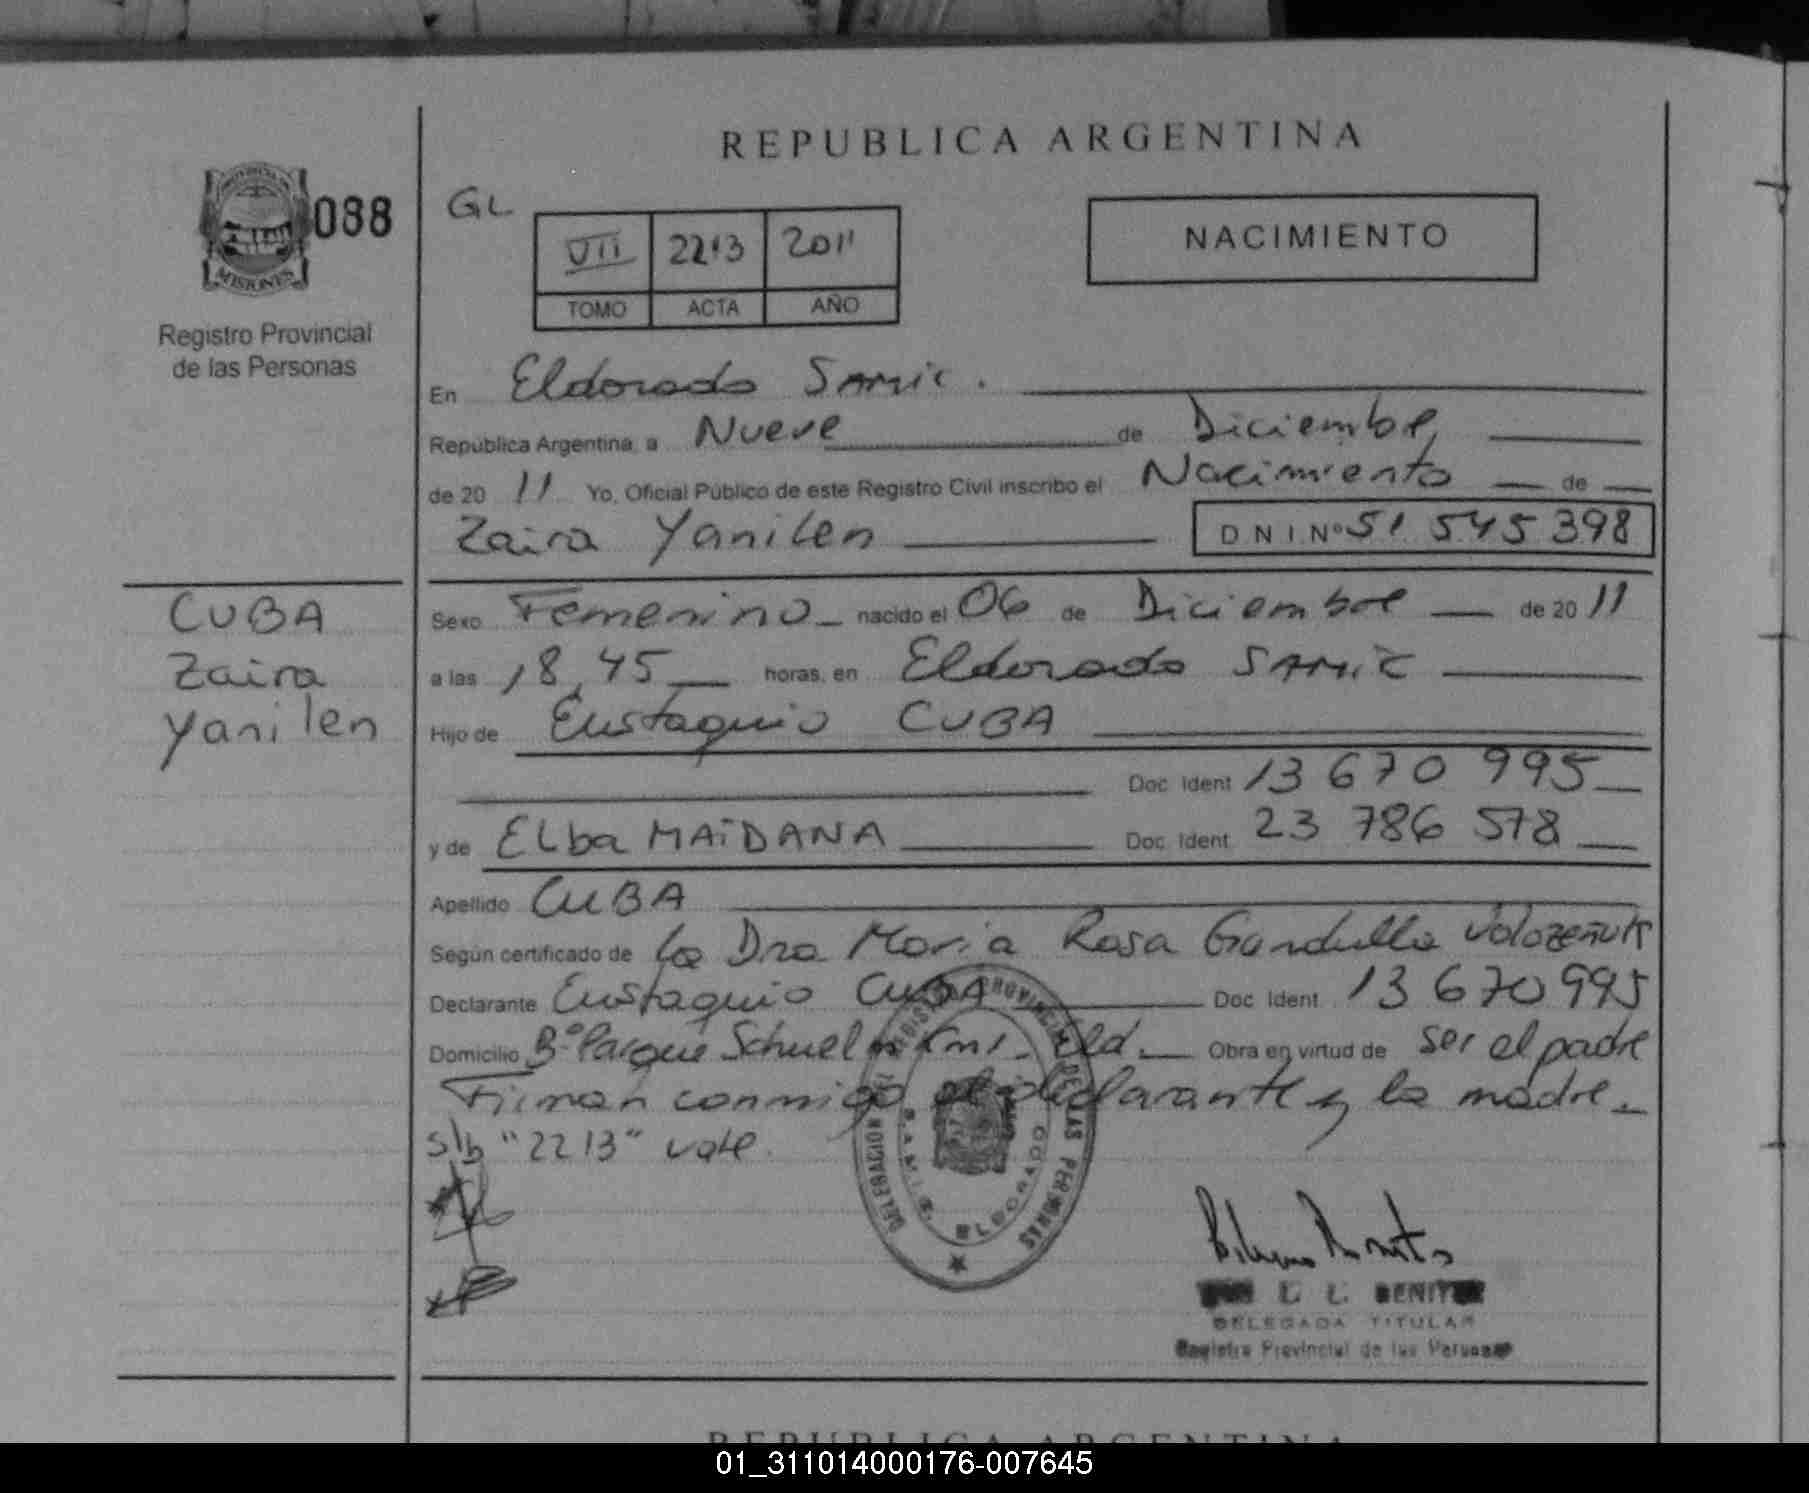 REPUBLICA ARGENTINA
PROVINCIA DE
MISIONES
088
Registro Provincial
de las Personas
GL
VII 2213 2011
TOMO ACTA AÑO
NACIMIENTO
En Eldorado SAMIC.
República Argentina, a Nueve de Diciembre,
de 20 11 Yo, Oficial Público de este Registro Civil inscribo el Nacimiento de
Zaira Yanilen D N I Nº 51 545 398
CUBA
Zaira
Yanilen
Sexo Femenino nacido el 06 de Diciembre de 20 11
a las 18,45 horas, en Eldorado SAMIC
Hijo de Eustaquio CUBA
Doc. Ident. 13 670 995
y de ELba MAIDANA Doc. Ident. 23 786 578
Apellido CUBA
Según certificado de la Dra Maria Rosa
Declarante Eustaquio CUBA Doc. Ident. 13 670 995
Domicilio Bº Parque Schuel Eld. Obra en virtud de ser el padre
Firman conmigo el declarante y la madre.
s/b "2213" vale.
DELEGACION DEL REGISTRO PROVINCIAL DE LAS PERSONAS
S.A.M.I.C. ELDORADO
BENITEZ
DELEGADA TITULAR
Registro Provincial de las Personas
REPUBLICA ARGENTINA
01_311014000176-007645